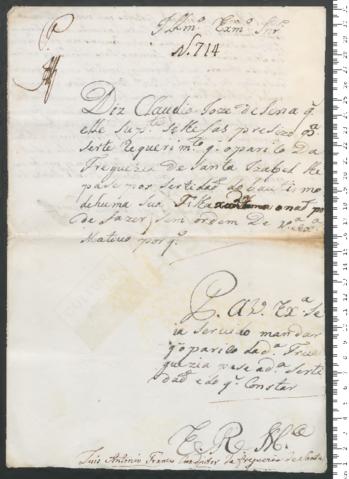 Illmº. Exmº. Snr.
N. 714
P.
Diz Claudio Joze de Sena q.
elle Sup.te se lhe fas presizo p.ª
serto Requerim.to q. o parico da
Freguezia de Santa Izabel lhe
pase mor sertidaõ de bautismo
de huma sua Filha o naõ po
de fazer sem ordem De V.ª Ex.ª
Mateuo por q.
P. A V. Ex.ª Se
ia servido mandar
q. o parico da d.ª Fre
guezia pase a d.ª Serti
daõ e do q. Constar
E R M.ce
Luis Antonio Franco da Freguezia de Santa